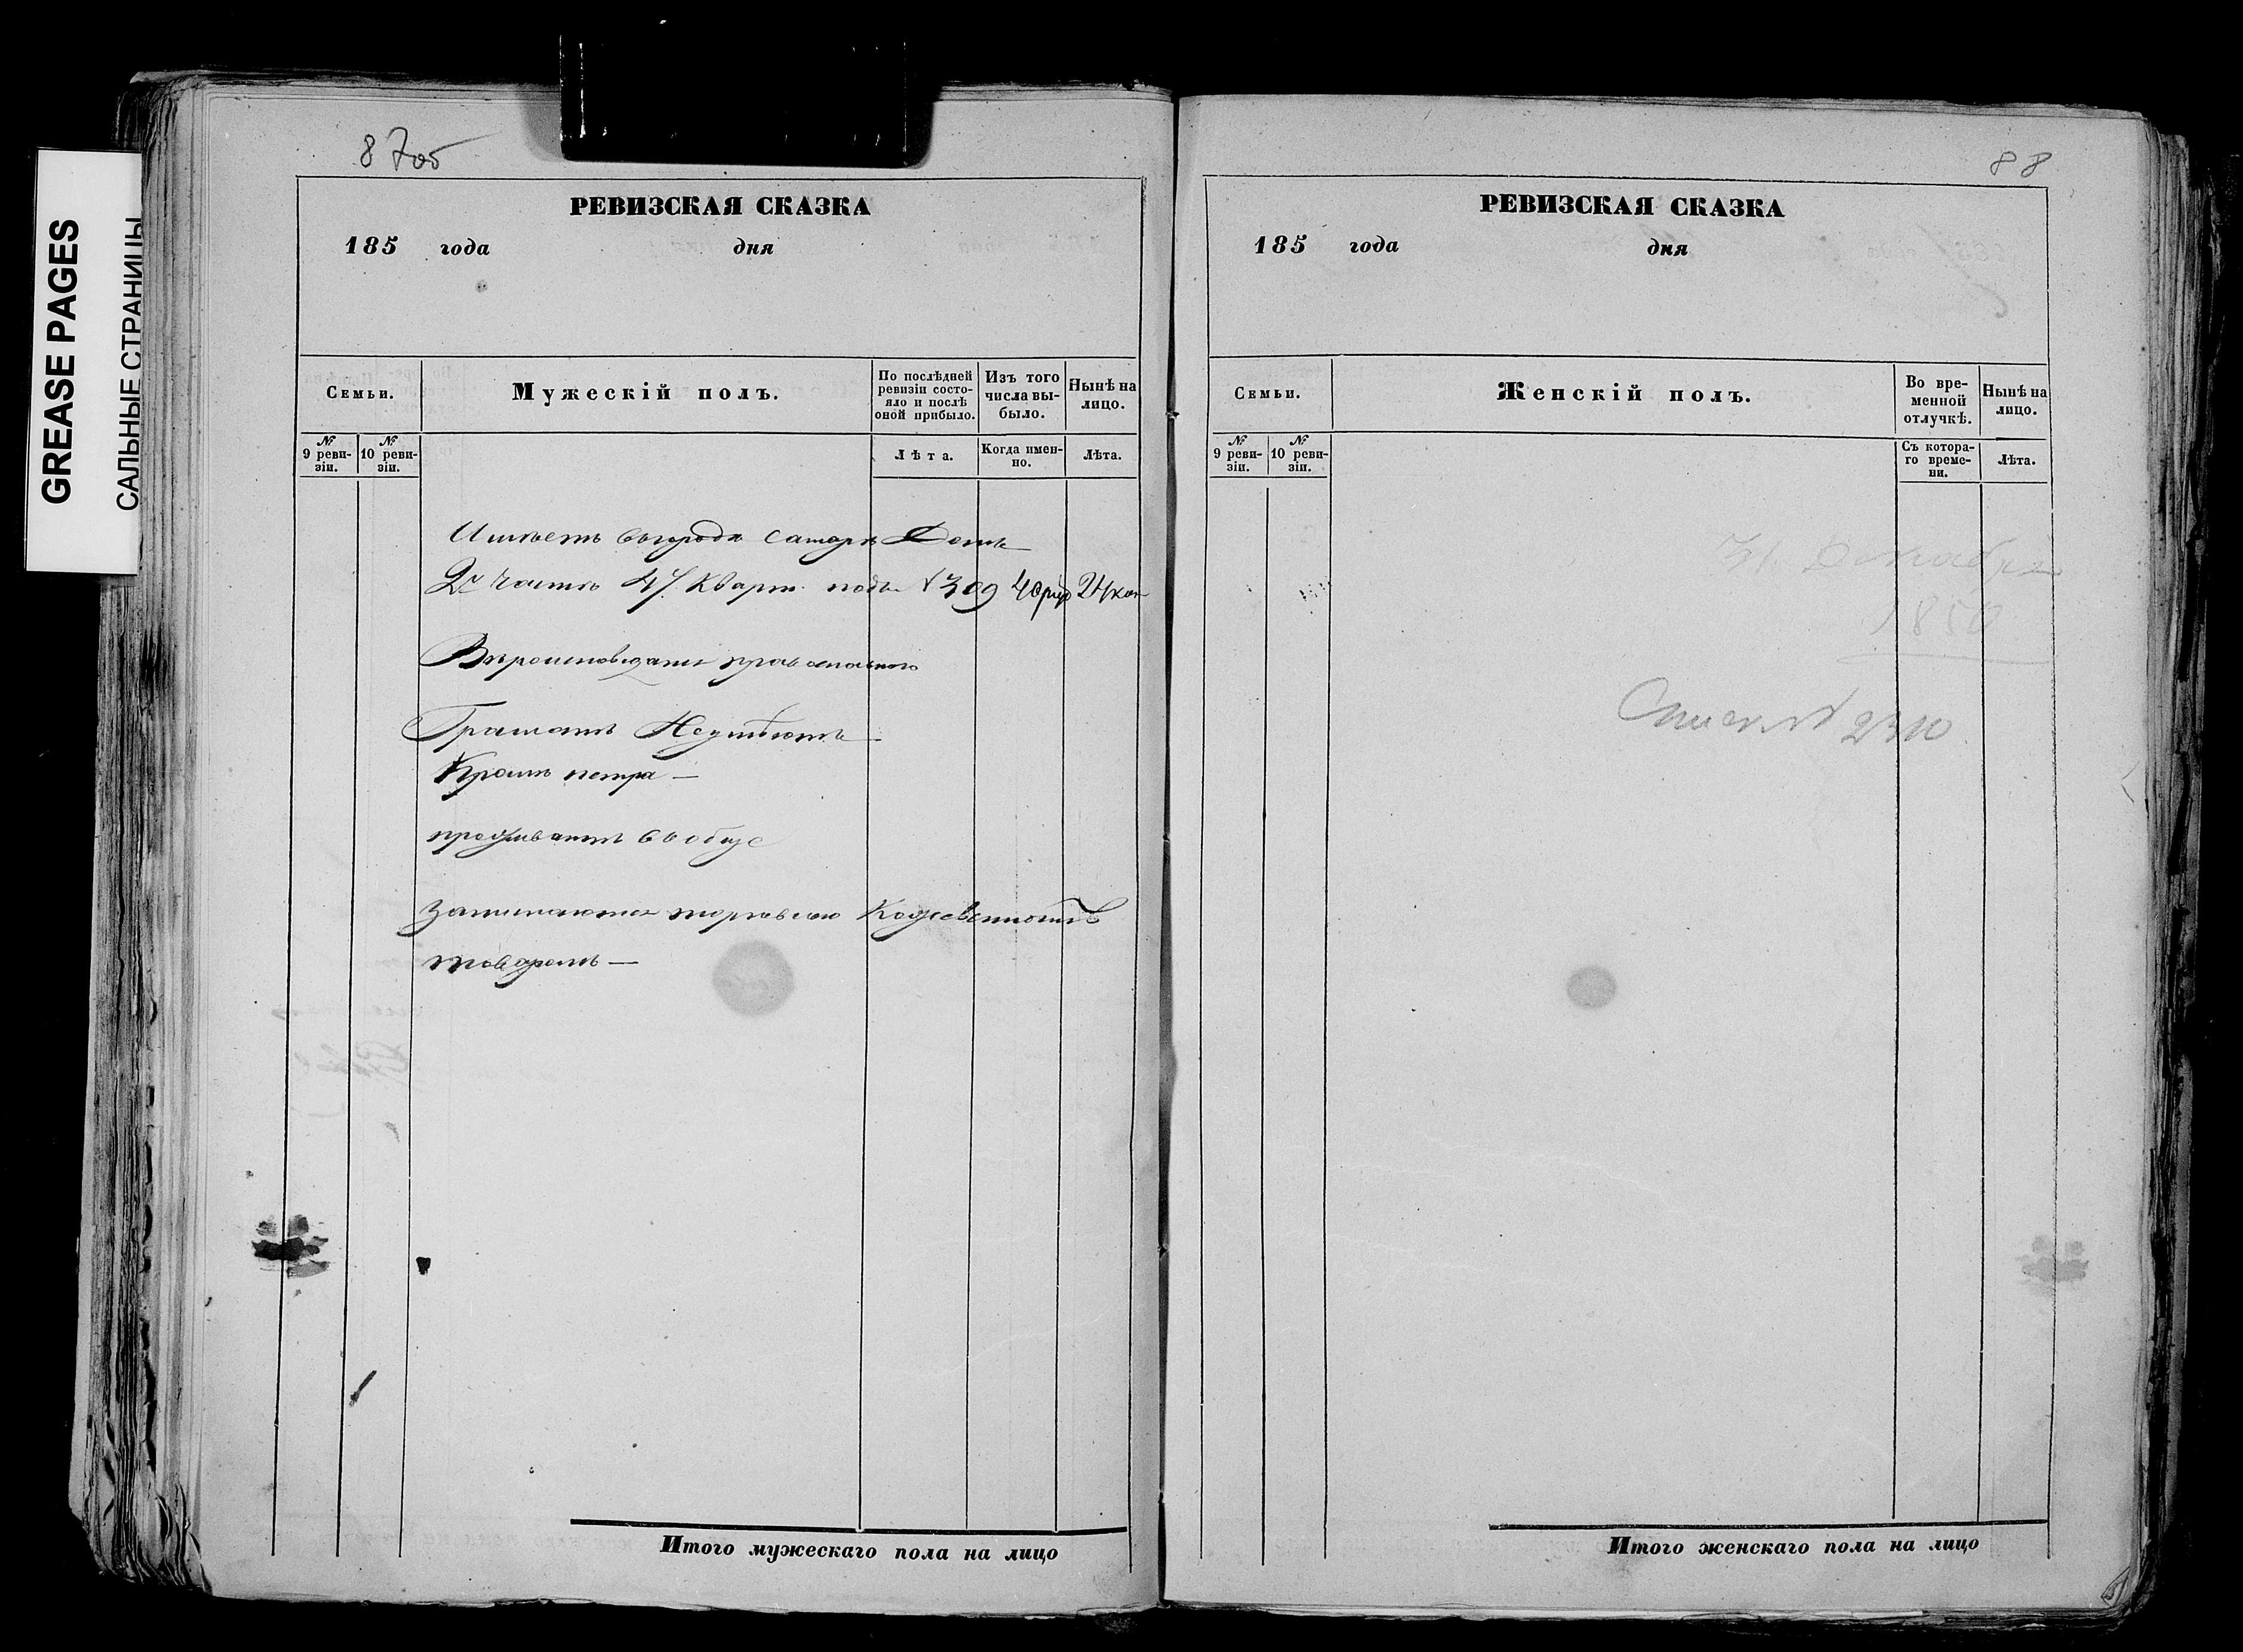 GREASE PAGES
САЛЬНЫЕ СТРАНИЦЫ
87об
РЕВИЗСКАЯ СКАЗКА
185 года дня
Семьи.
Мужескій полъ.
По послѣдней ревизіи состояло и послѣ оной прибыло.
Изъ того числа выбыло.
Нынѣ на лицо.
№ 9 ревизіи.
№ 10 ревизіи.
Лѣта.
Когда именно.
Лѣта.
Имѣетъ вгородѣ самарѣ Домъ
2й части 47 Кварт. подъ № 309 40 ру 24 коп
Вѣроисповѣдания православного
Грамотѣ Неумѣютъ
Кромѣ петра —
проживаютъ вообще
Занимаются торговлею Кожевеннымъ
товаромъ —
Итого мужескаго пола на лицо
88
РЕВИЗСКАЯ СКАЗКА
185 года дня
Семьи.
Женскій полъ.
Во временной отлучкѣ.
Нынѣ на лицо.
№ 9 ревизіи.
№ 10 ревизіи.
Съ котораго времени.
Лѣта.
31. Декабря
1850
№ 2310
Итого женскаго пола на лицо